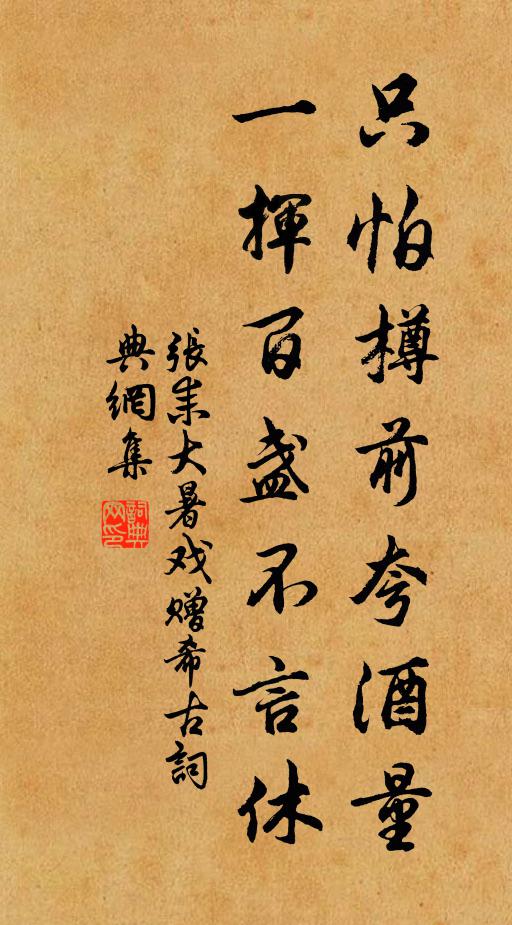 只怕樽前夸酒量
一揮百盏不言休
張耒大暑戏赠希古詞
典網集
詞典
网印